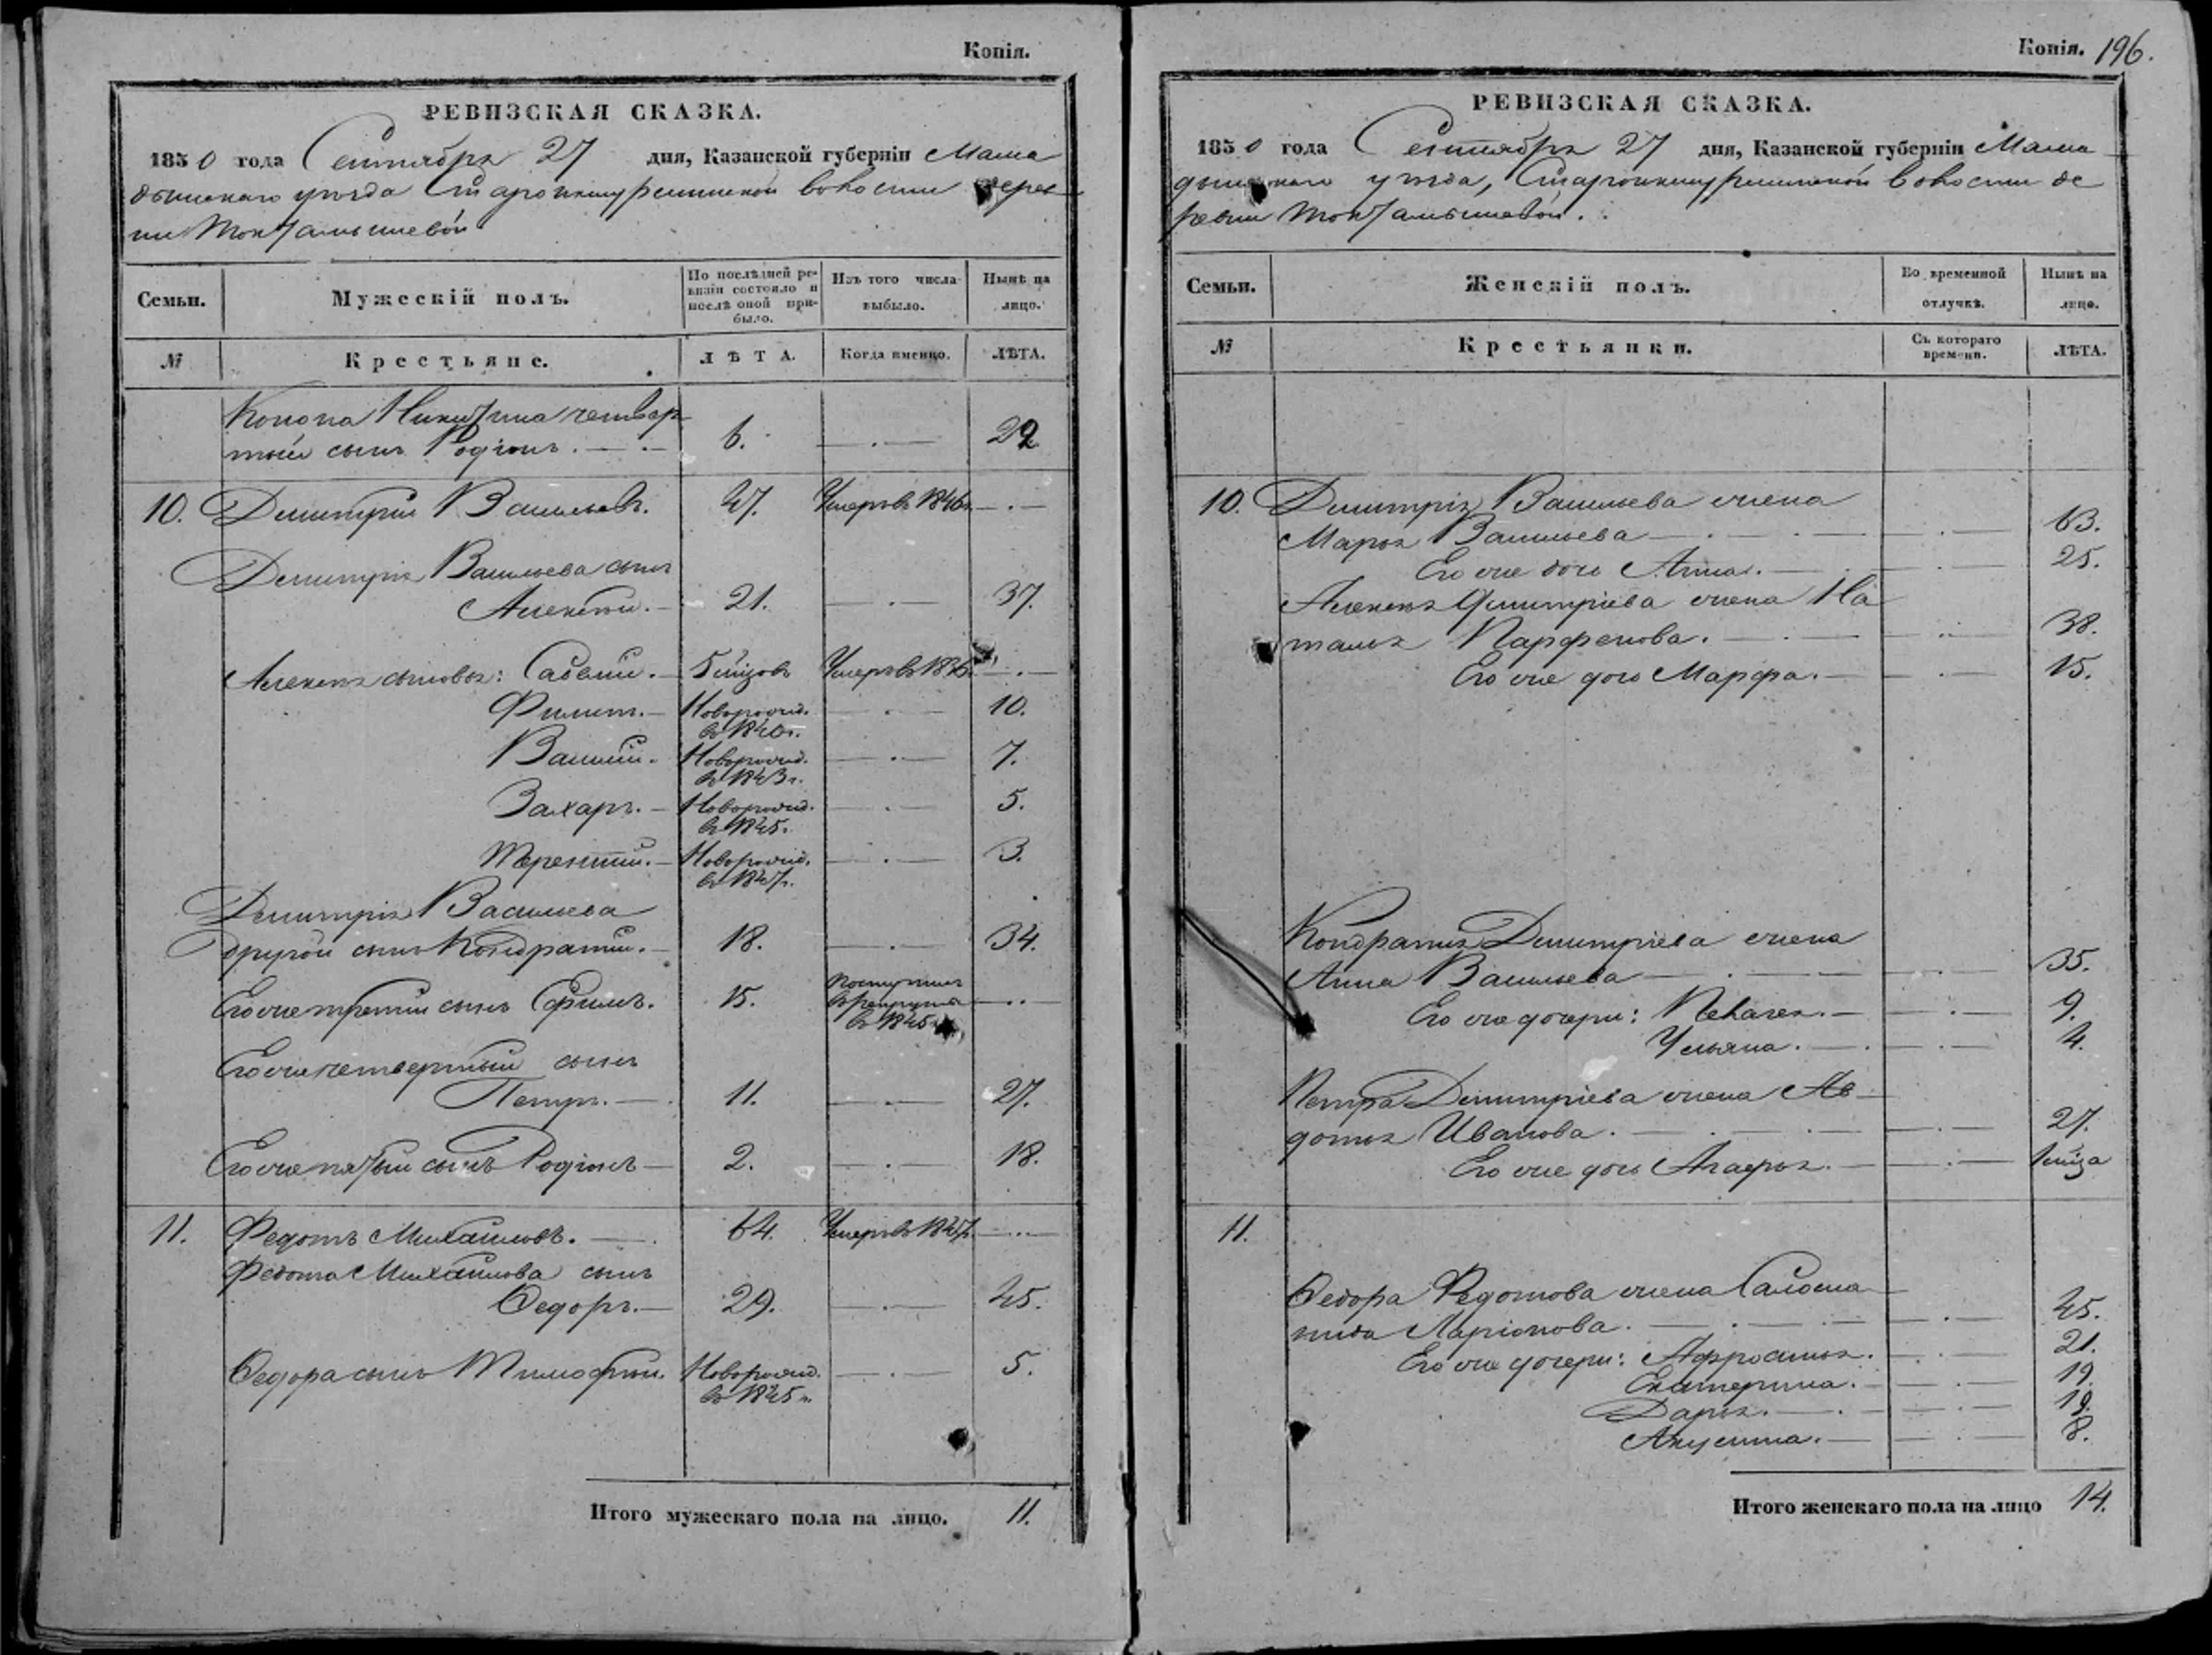 Копія.
РЕВИЗСКАЯ СКАЗКА.
1850 года Сентября 27 дня, Казанской губерніи Мама
дышскаго уѣзда волости дерев
ни
Семьи.
Мужескій полъ.
По послѣдней ре-
визіи состояло и
послѣ оной при-
было.
Изъ того числа
выбыло.
Нынѣ на
лицо.
№
Крестьяне.
ЛѢТА.
Когда именно.
ЛѢТА.
Конона Никитина четвер
тый сынъ Родіонъ. 6. 22
10. Димитрій Васильевъ. 47. Умеръ въ 1846 г.
Димитрія Васильева сынъ
Алексѣй. 21. 37.
Алексѣя сыновья: Савелій. Умеръ въ
Филипъ. Новорожд. 10.
въ 1840 г.
Василій. Новорожд. 7.
въ 1843 г.
Захаръ. Новорожд. 5.
въ 1845.
Терентій. Новорожд. 3.
въ 1847 г.
Димитрія Васильева
другой сынъ Кондратій. 18. 34.
Его же третій сынъ Ефимъ. 15. поступилъ
въ рекруты
въ 1845 г.
Его же четвертый сынъ
Петръ. 11. 27.
Его же пятый сынъ Родіонъ 2. 18.
11. Федотъ Михайловъ. 64. Умеръ въ 1847 г.
Федота Михайлова сынъ
Ѳедоръ. 29. 45.
Ѳедора сынъ Тимофѣй. Новорожд. 5.
въ 1845 г.
Итого мужескаго пола на лицо. 11.
Копія. 196.
РЕВИЗСКАЯ СКАЗКА.
1850 года Сентября 27 дня, Казанской губерніи Мама
дышскаго уѣзда, волости де
ревни
Семьи.
Женскій полъ.
Во временной
отлучкѣ.
Нынѣ на
лицо.
№
Крестьянки.
Съ котораго
времени.
ЛѢТА.
10. Димитрія Васильева жена
Марья Васильева 63.
Его же дочь Анна. 25.
Алексѣя Димитріева жена На
талья Парфенова. 38.
Его же дочь Марфа. 15.
Кондратья Димитріева жена
Анна Васильева 35.
Его же дочери: Пелагея. 9.
Ульяна. 4.
Петра Димитріева жена Ав
дотья Иванова. 27.
Его же дочь Агафья.
11.
Ѳедора Федотова жена Саломо
нида Ларіонова. 45.
Его же дочери: Афросинья. 21.
Екатерина. 19.
Дарья. 19.
Акулина. 8.
Итого женскаго пола на лицо 14.